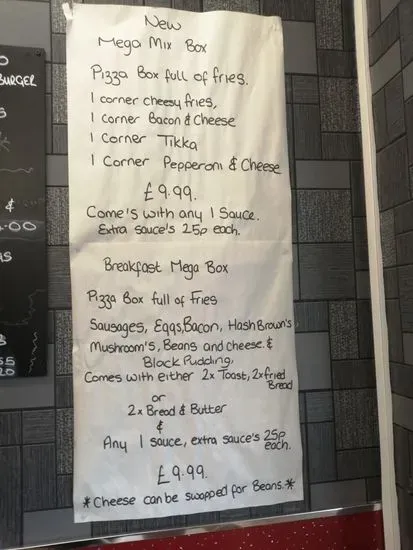 New
Mega Mix Box
Pizza Box full of fries.
1 corner cheesy fries,
1 corner Bacon & Cheese
1 Corner Tikka
1 Corner Pepperoni & Cheese
£9.99.
Come's with any 1 Sauce.
Extra sauce's 25p each.
Breakfast Mega Box
Pizza Box full of Fries
Sausages, Eggs, Bacon, Hash Brown's
Mushroom's, Beans and cheese. &
Black Pudding,
Comes with either 2x Toast, 2x fried
Bread
or
2x Bread & Butter
&
Any 1 sauce, extra sauce's 25p
each.
£9.99.
*Cheese can be swopped for Beans.*
BURGER
&
.00